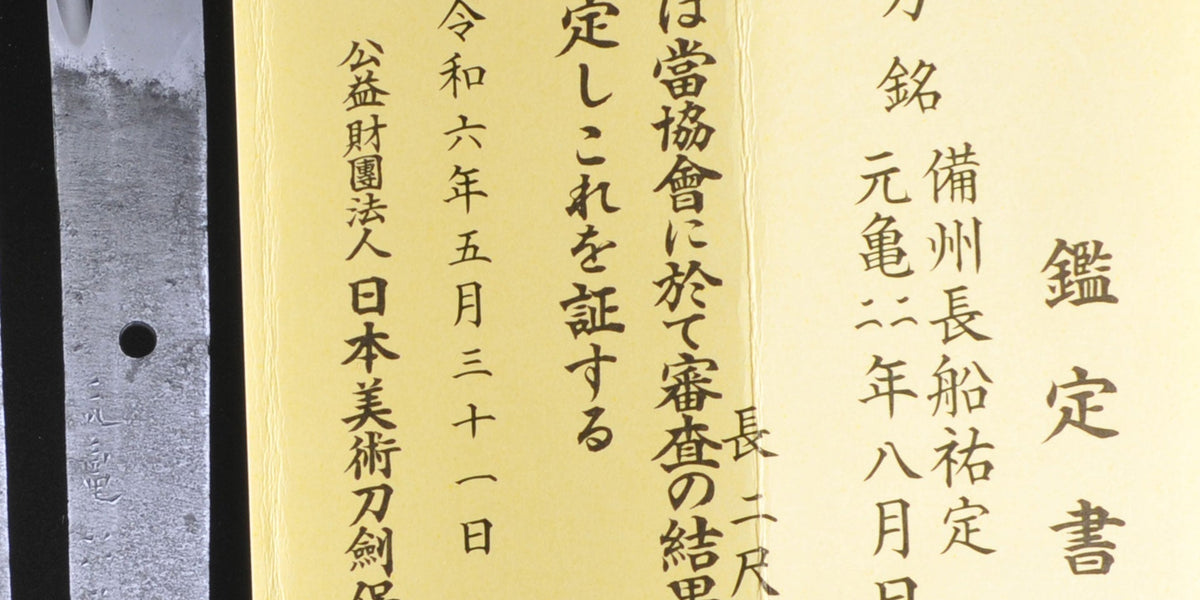 鑑定書
銘
備州長船祐定
元亀二二年八月日
長二尺
は當協會に於て審査の結果
定しこれを証する
令和六年五月三十一日
公益財團法人日本美術刀劍保
元亀二二